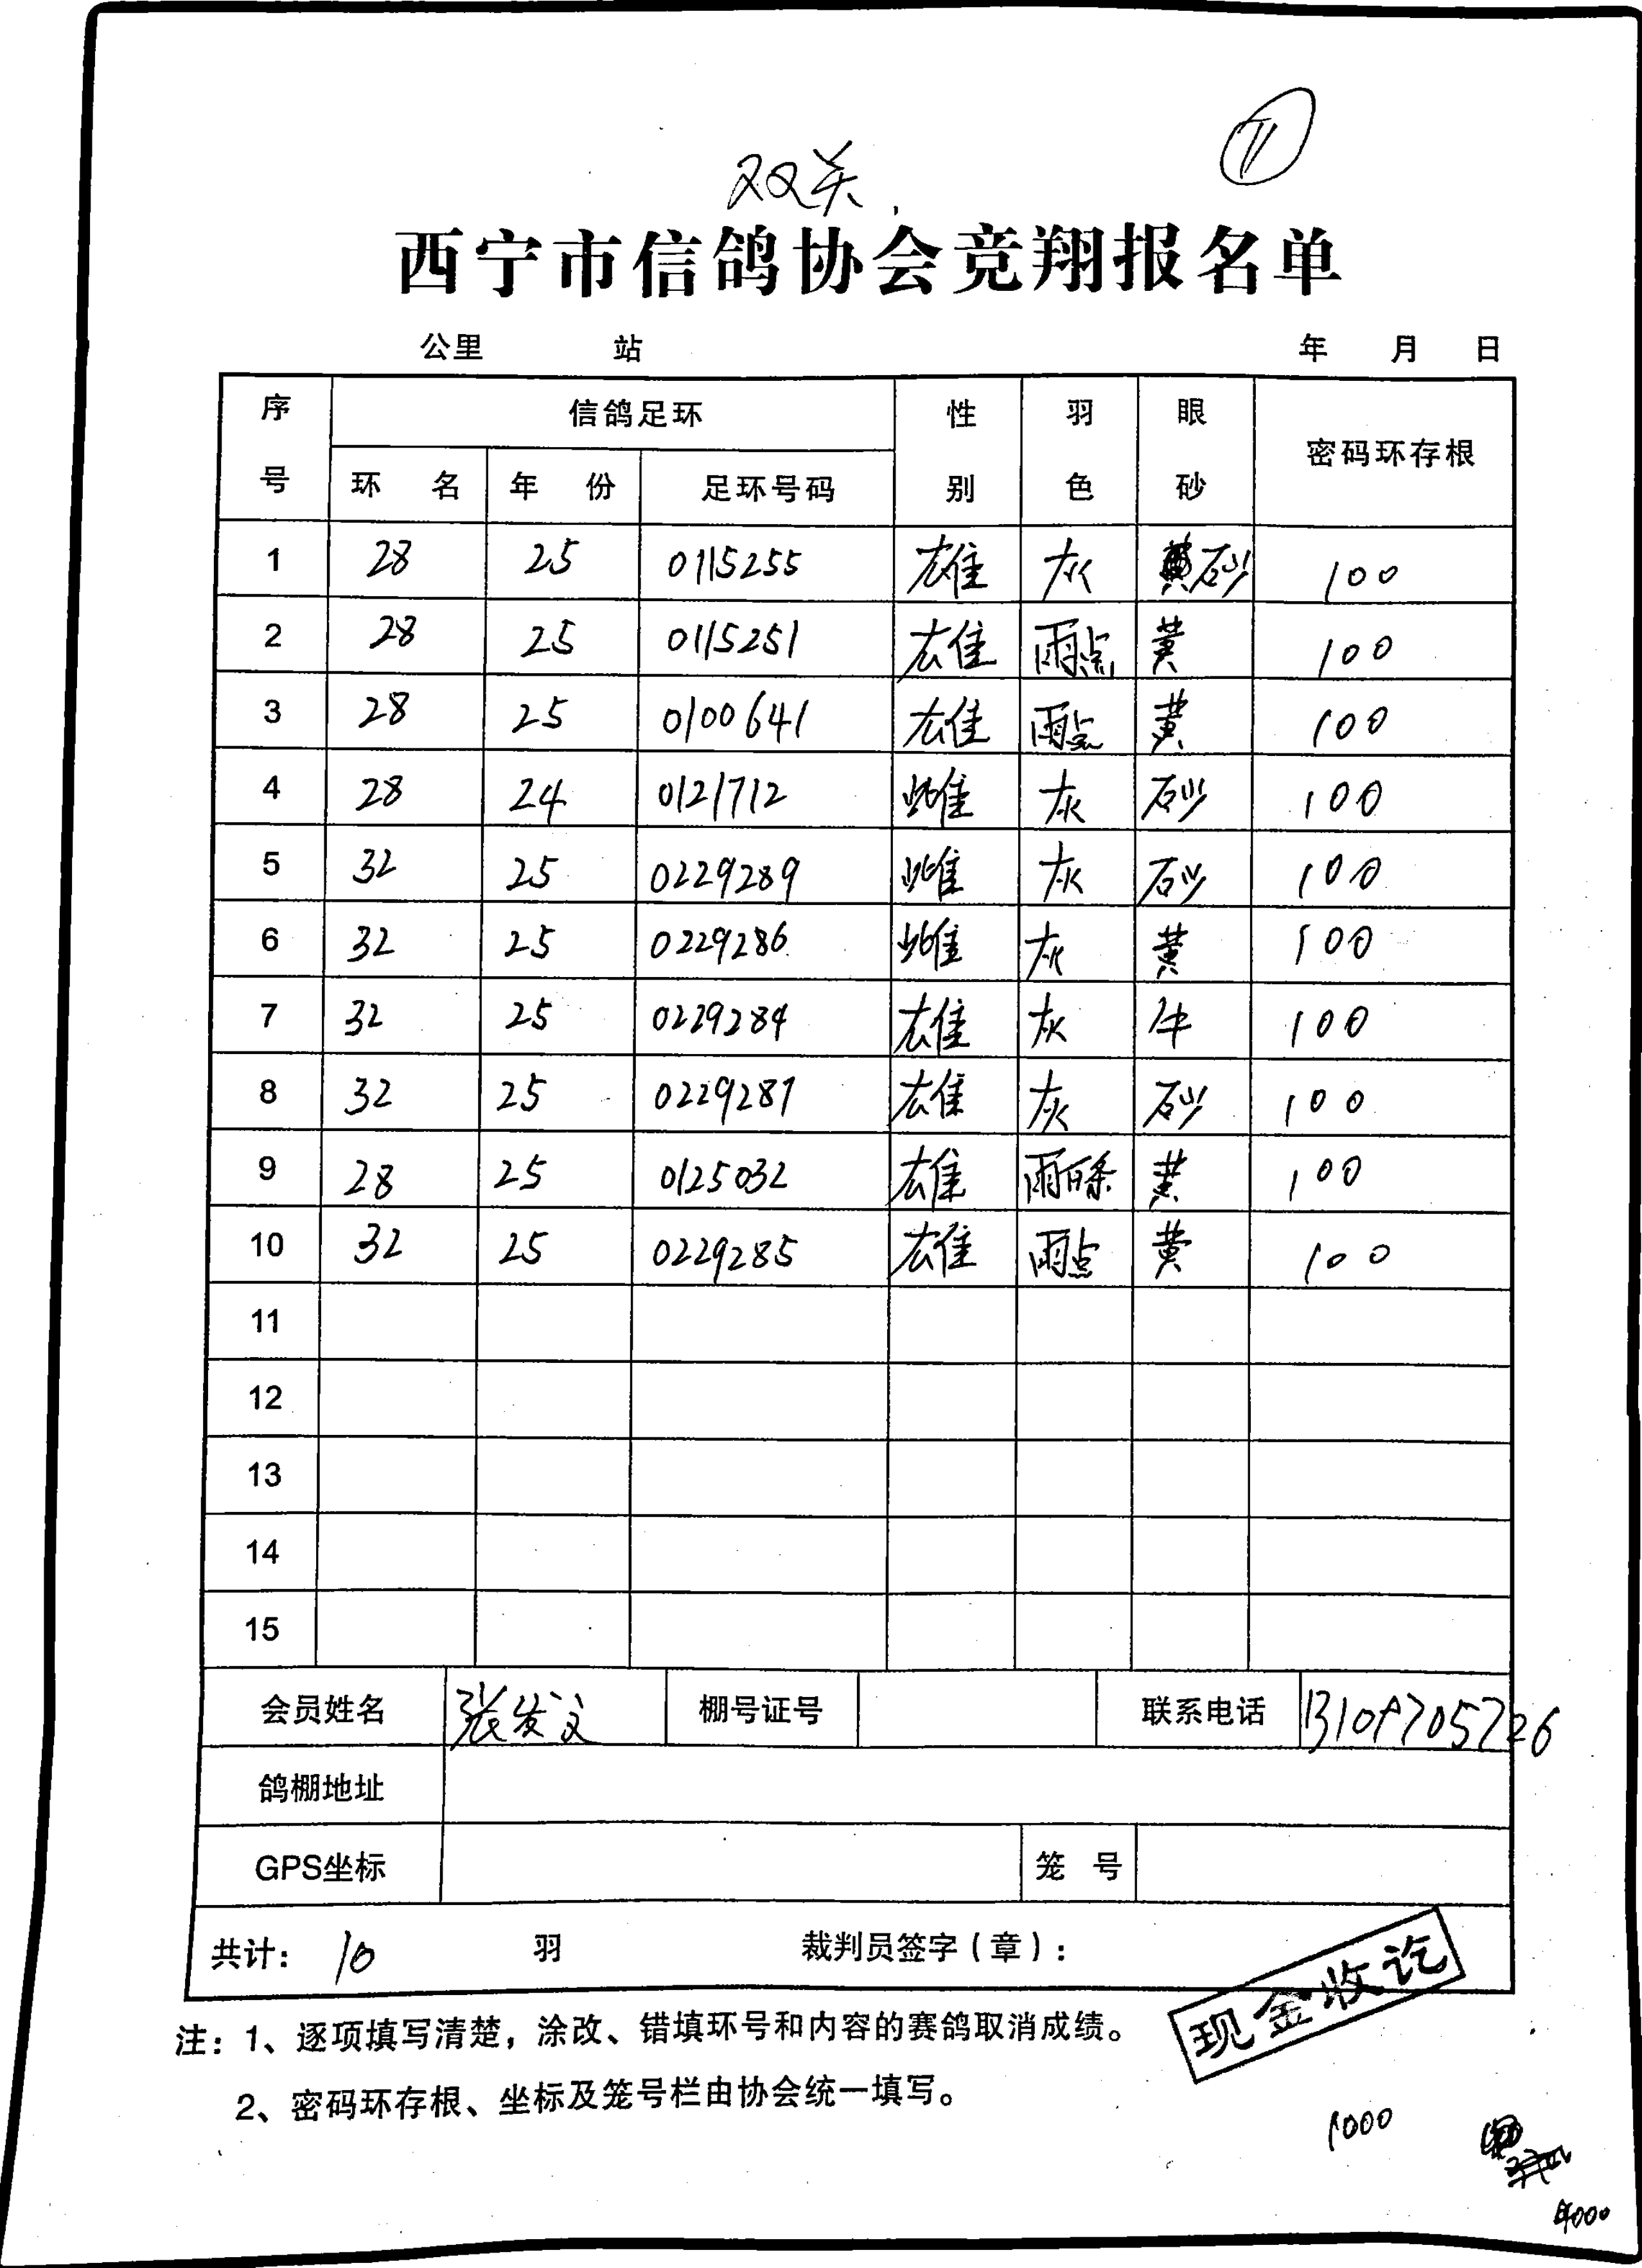 双关
西宁市信鸽协会竞翔报名单
公里 站 年 月 日
序号 信鸽足环 性别 羽色 眼砂 密码环存根
环名 年份 足环号码
1 28 25 0115255 雄 灰 砂 100
2 28 25 0115251 雄 雨点 黄 100
3 28 25 0100641 雄 雨点 黄 100
4 28 24 0121712 雌 灰 砂 100
5 32 25 0229289 雌 灰 砂 100
6 32 25 0229286 雌 灰 黄 100
7 32 25 0229284 雄 灰 牛 100
8 32 25 0229287 雄 灰 砂 100
9 28 25 0125032 雄 雨白条 黄 100
10 32 25 0229285 雄 雨点 黄 100
11
12
13
14
15
会员姓名 张发文 棚号证号 联系电话 13109705726
鸽棚地址
GPS坐标 笼号
共计: 10 羽 裁判员签字(章):
现金收讫
注: 1、逐项填写清楚，涂改、错填环号和内容的赛鸽取消成绩。
2、密码环存根、坐标及笼号栏由协会统一填写。
1000
4000